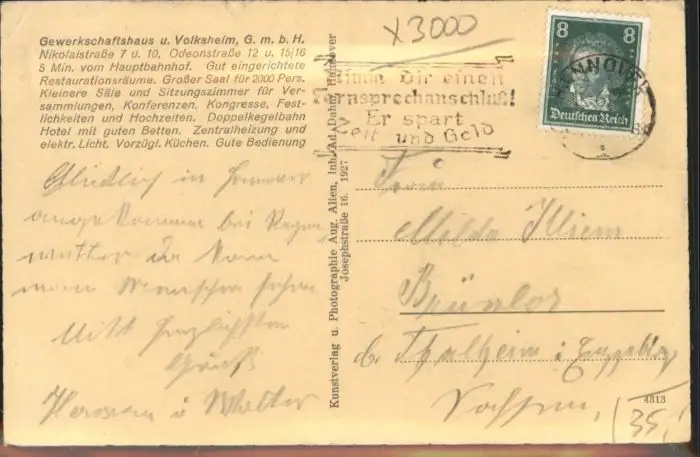 Gewerkschaftshaus u. Volksheim, G. m. b. H.
Nikolaistraße 7 u. 10, Odeonstraße 12 u. 15/16
5 Min. vom Hauptbahnhof. Gut eingerichtete
Restaurationsräume. Großer Saal für 2000 Pers.
Kleinere Säle und Sitzungszimmer für Ver-
sammlungen, Konferenzen, Kongresse, Fest-
lichkeiten und Hochzeiten. Doppelkegelbahn
Hotel mit guten Betten. Zentralheizung und
elektr. Licht. Vorzügl. Küchen. Gute Bedienung
Glücklich in Hannover
angekommen bei Regen
wetter da kann
man Menschen sehen
Mitt herzlichsten
Gruß
Hermann u Walter
Kunstverlag u. Photographie Aug. Alten, Inh. Ad. Dahm, Hannover
Josephstraße 16. 1927
x3000
Nimm Dir einen
Fernsprechanschluß!
Er spart
Zeit und Geld
8 8
Deutsches Reich
HANNOVER
Frau
Milda
Brünlos
b. Thalheim i Erzgebirg
Sachsen,
4313
(35,-)